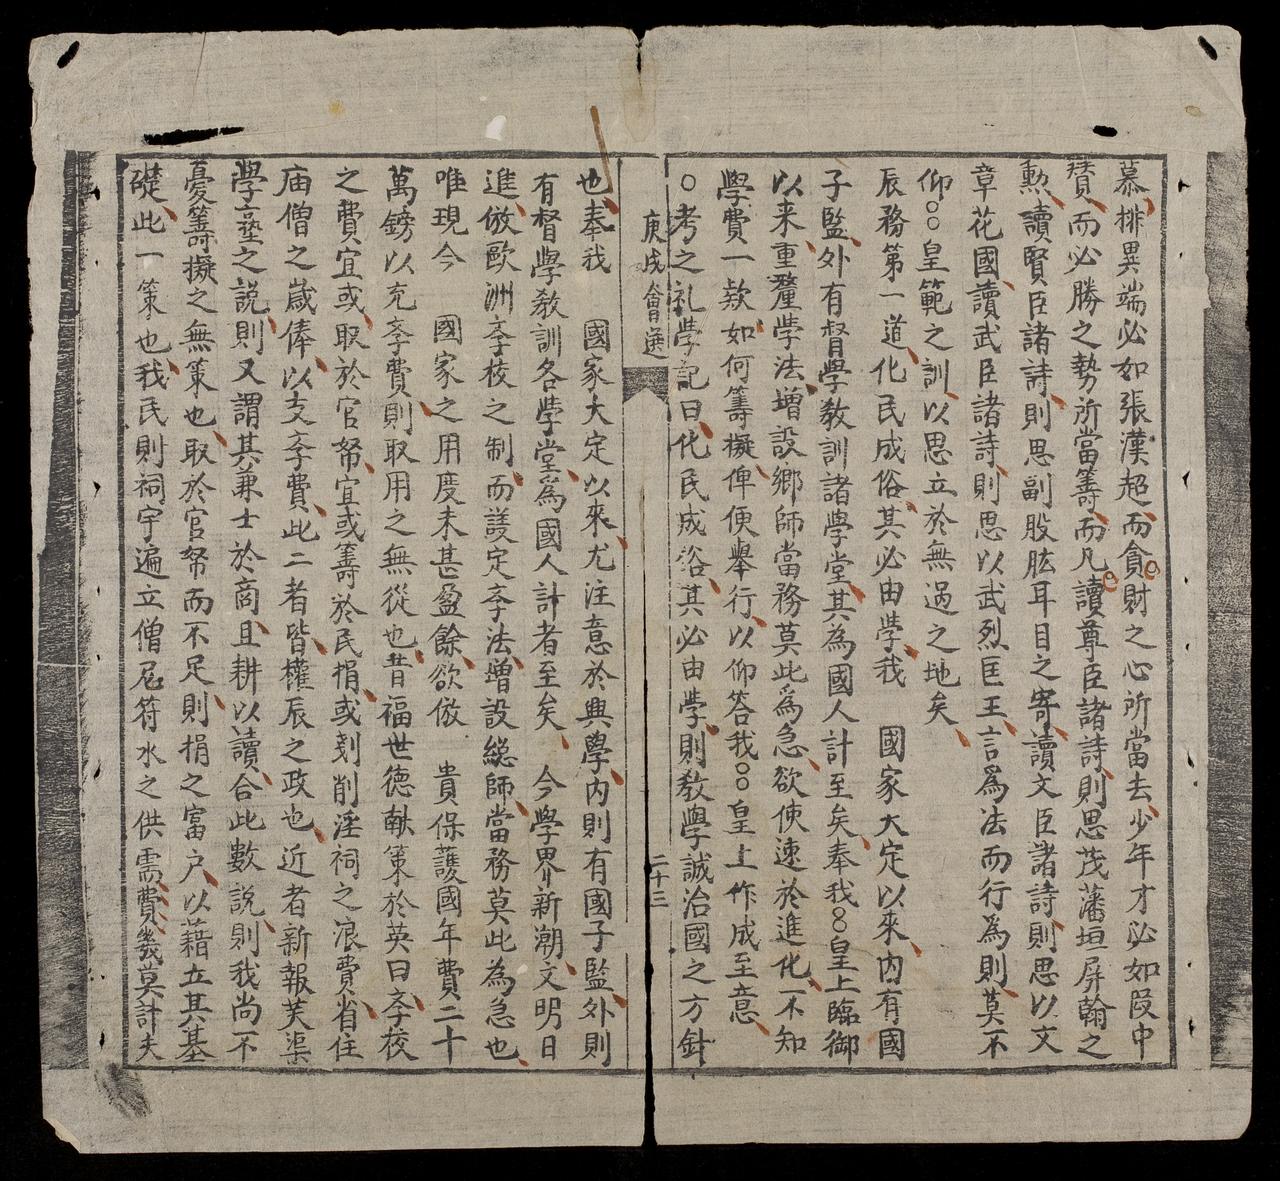 慕排異端必如張漢超而貪財之心所當去少年才必如段中
賛而必勝之勢所當籌而凡讀尊臣諸詩則思茂藩垣屏翰之
勲讀賢臣諸詩則思副股肱耳目之寄讀文臣諸詩則思以文
章花國讀武臣諸詩則思以武烈匡王言爲法而行為則莫不
仰○○皇範之訓以思立於無過之地矣
辰務第一道化民成俗其必由學我 國家大定以來內有國
子監外有督學教訓諸學堂其為國人計至矣奉我○○皇上臨御
以来重釐學法增設鄉師當務莫此爲急欲使速於進化不知
學費一欵如何籌擬俾便舉行以仰答我○○皇上作成至意
○考之礼學記曰化民成俗其必由學則教學誠治國之方針
庚戌會選
二十三
也奉我 國家大定以來尤注意於興學內則有國子監外則
有督學教訓各學堂爲國人計者至矣 今學界新潮文明日
進倣歐洲斈校之制而議定斈法增設總師當務莫此為急也
唯現今 國家之用度未甚盈餘欲倣 貴保護國年費二十
萬鎊以充斈費則取用之無從也昔福世德献策於英曰斈校
之費宜或取於官帑宜或籌於民捐或剗削淫祠之浪費省住
庙僧之歳俸以支斈費此二者皆權辰之政也近者新報芙渠
學塾之説則又謂其兼士於商且耕以讀合此數説則我尚不
憂籌擬之無策也取於官帑而不足則捐之富户以藉立其基
礎此一策也我民則祠宇遍立僧尼符水之供需費幾莫計夫